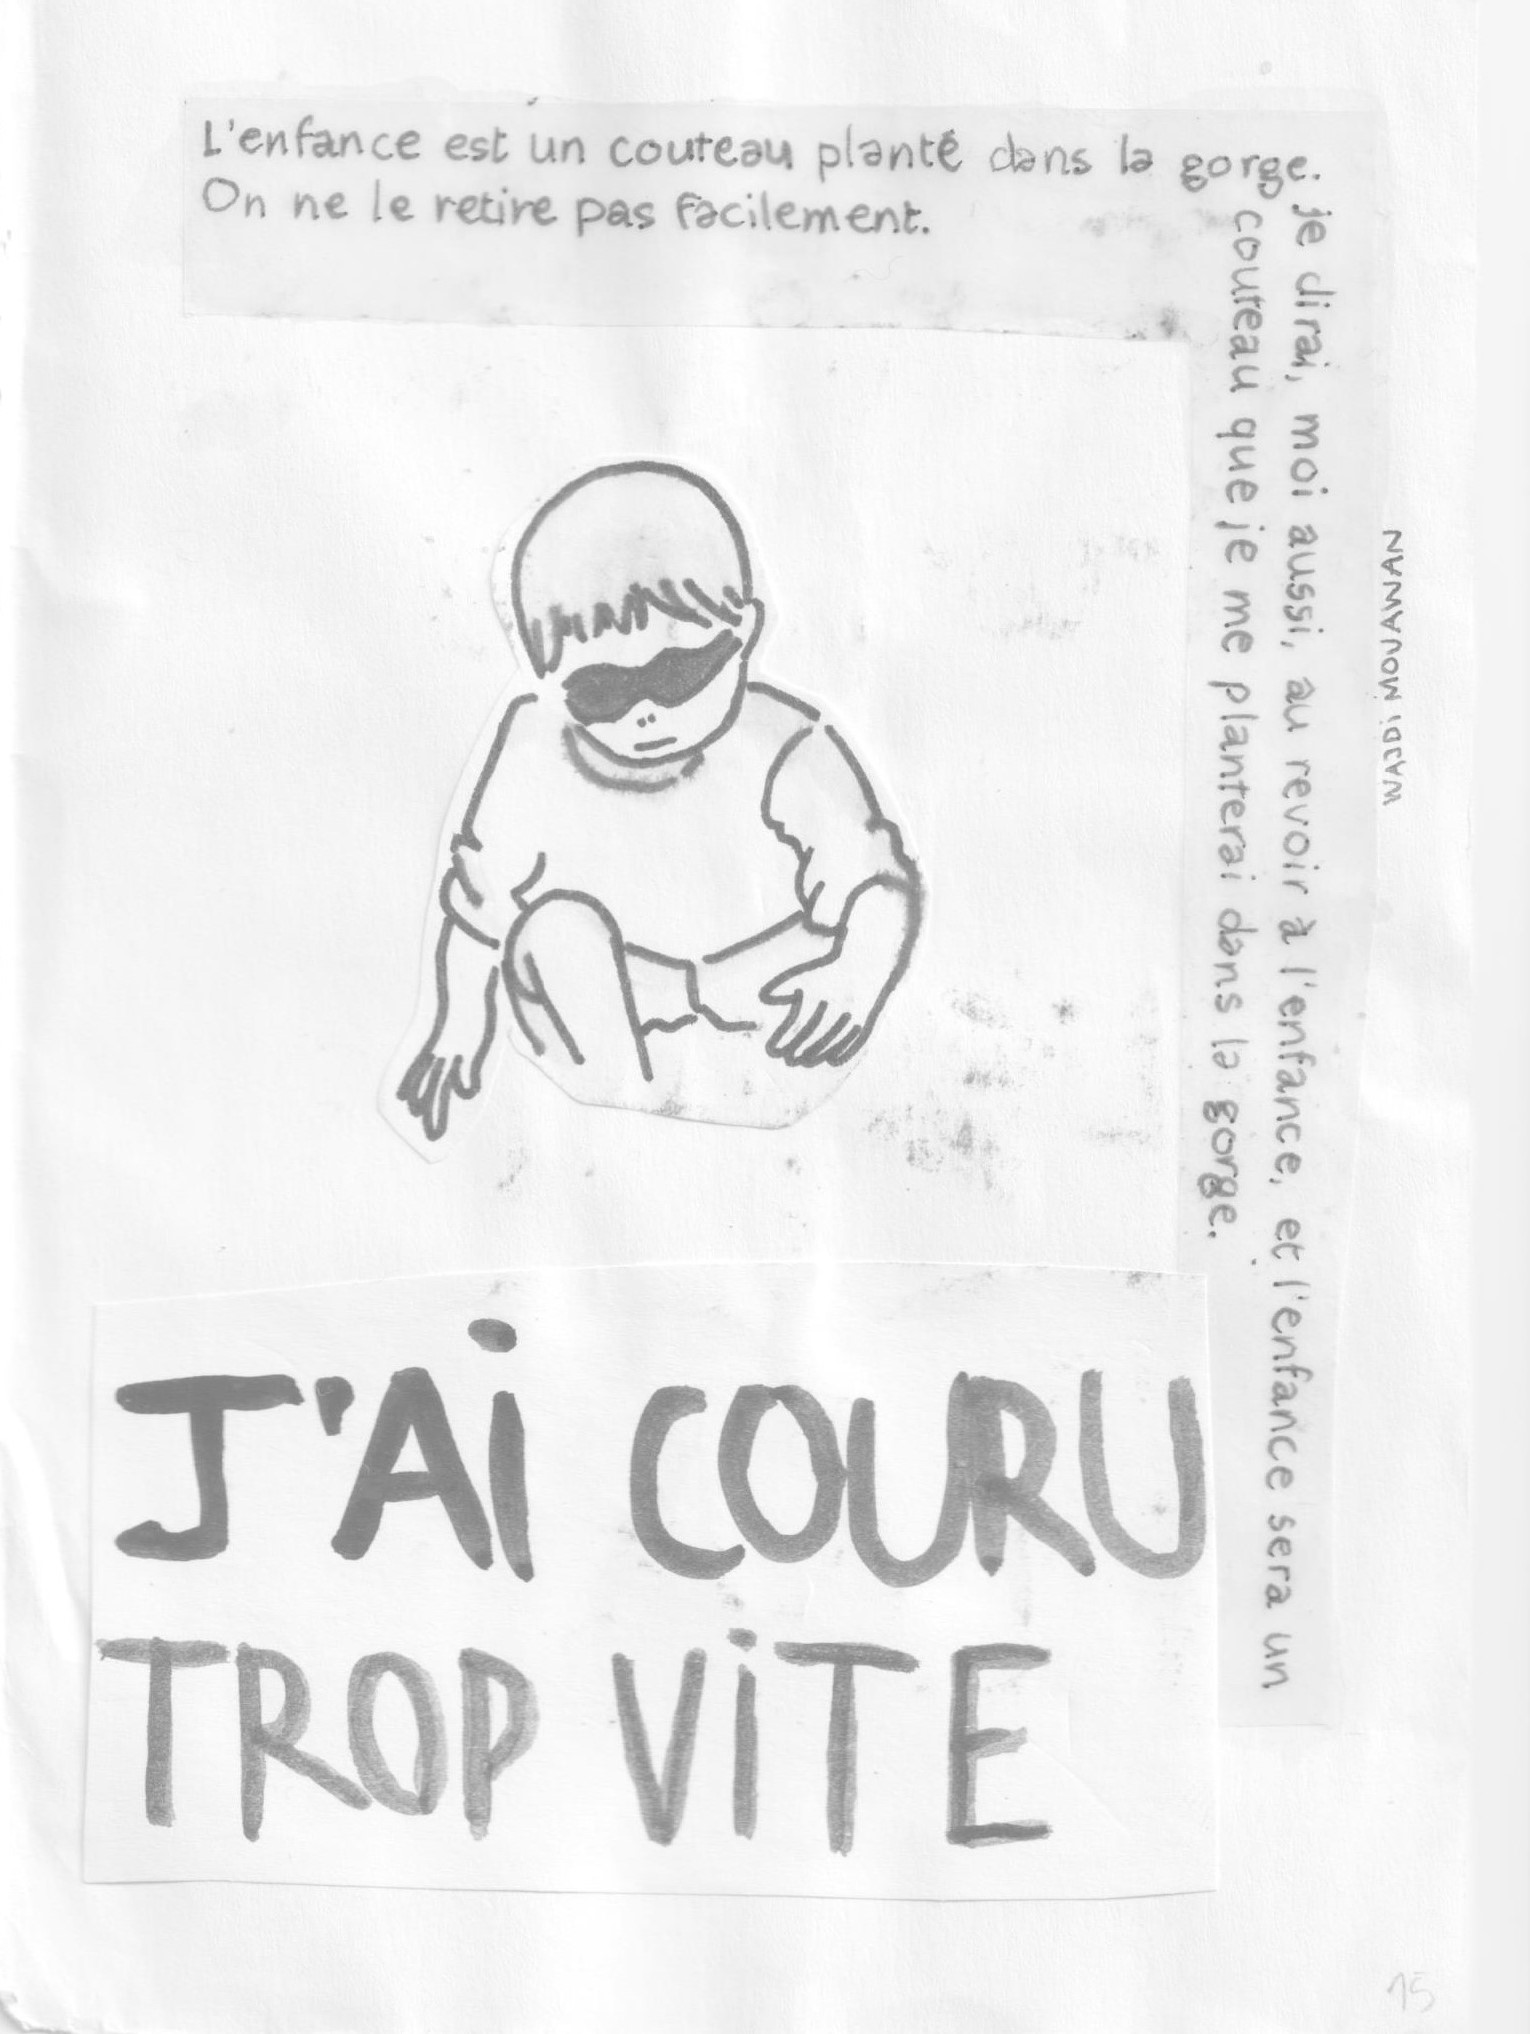 L'enfance est un couteau planté dans la gorge.
On ne le retire pas facilement.
je dirai, moi aussi, au revoir à l'enfance, et l'enfance sera un
couteau que je me planterai dans la gorge.
WAJDI MOUAWAN
J'Ai COURU
TROP ViTE
15